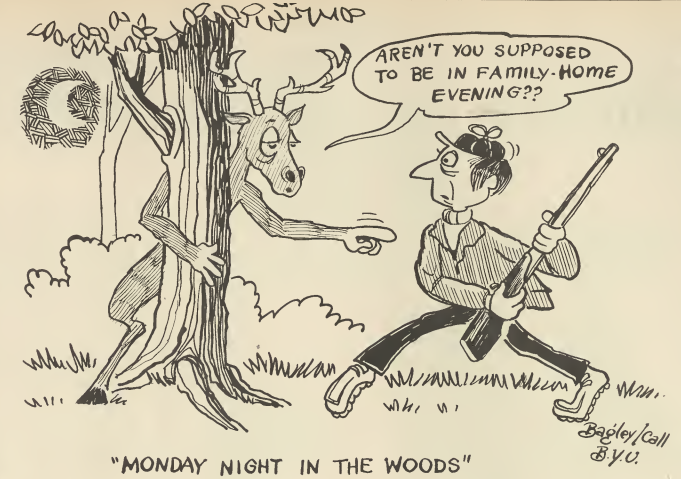 AREN'T YOU SUPPOSED
TO BE IN FAMILY-HOME
EVENING??
Bagley/Call
B.Y.U.
"MONDAY NIGHT IN THE WOODS"